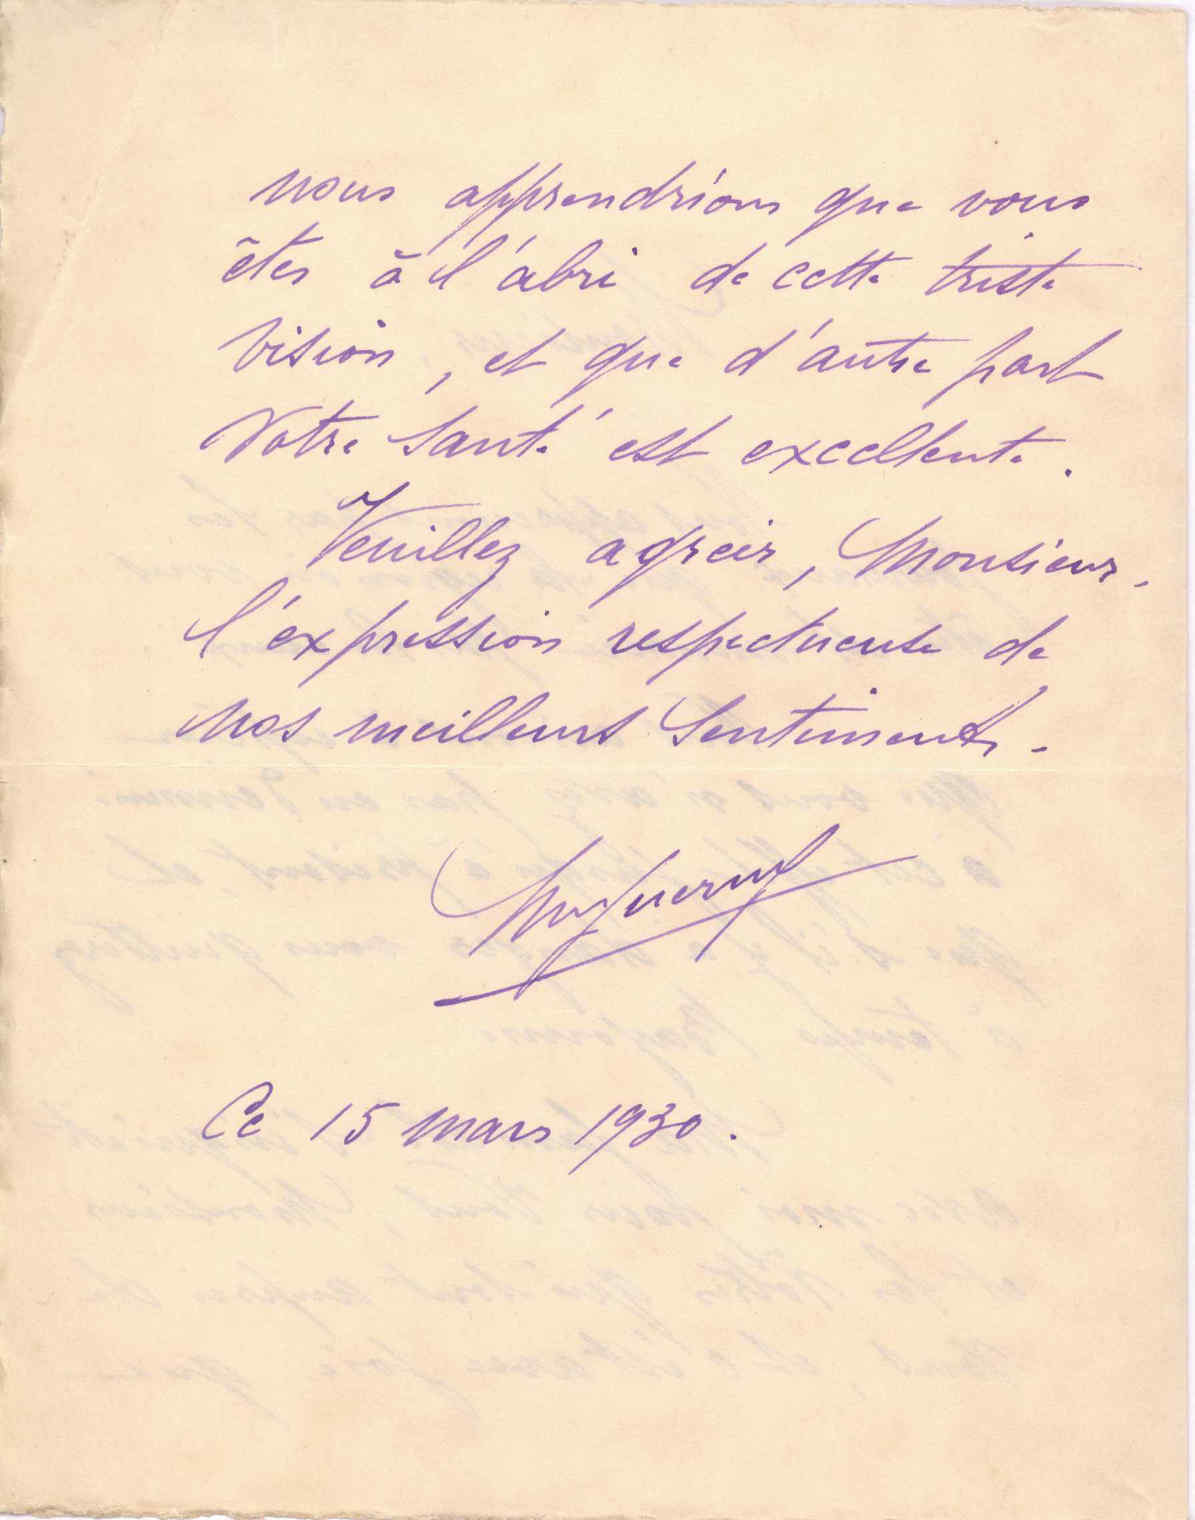 nous apprendrions que vous
êtes à l'abri de cette triste
vision, et que d'autre part
votre santé est excellente.
Veuillez agréer, Monsieur,
l'expression respectueuse de
nos meilleurs sentiments.
Ce 15 mars 1930.